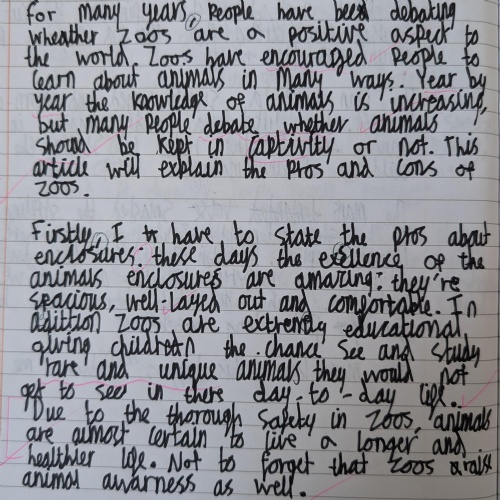 For many years, People have been debating
wheather Zoos are a positive aspect to
the world. Zoos have encouraged People to
learn about animals in many ways. Year by
year the knowledge of animals is increasing,
but many People debate whether animals
should be kept in captivity or not. This
article will explain the Pros and cons of
Zoos.
Firstly, I have to state the pros about
enclosures: these days the exellence of the
animals enclosures are amazing: they're
spacious, well-layed out and comfortable. In
adittion Zoos are extremly educational
giving children the chance see and study
rare and unique animals they would not
get to see in there day-to-day life.
Due to the thorough safety in Zoos, animals
are almost certain to live a longer and
healthier life. Not to forget that Zoos
animal awarness as well.